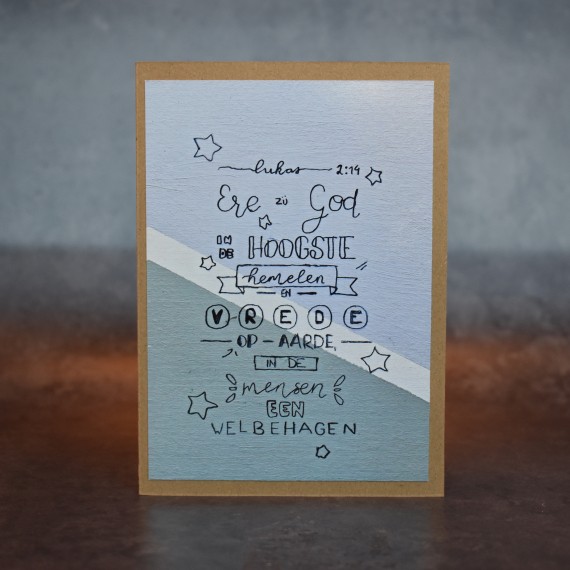 lukas 2:14
Ere zij God
IN DE HOOGSTE
hemelen
EN
VREDE
OP-AARDE,
IN DE
mensen
EEN
WELBEHAGEN